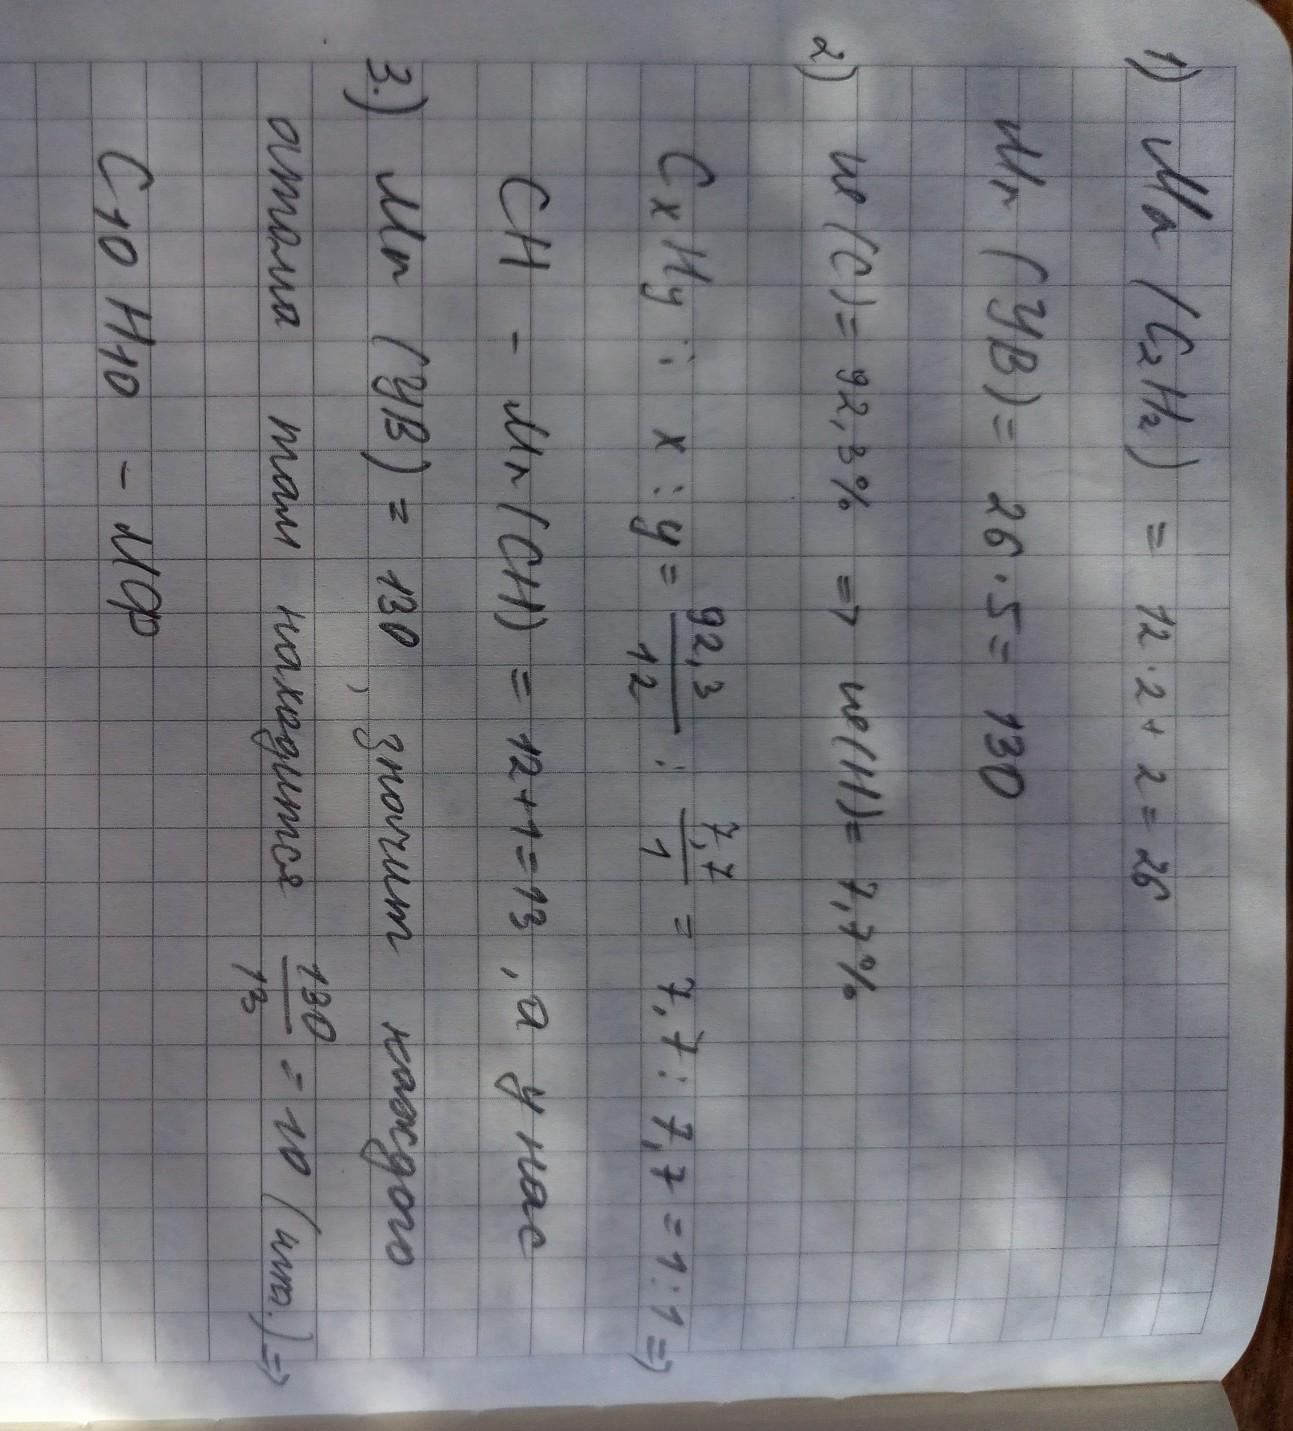 1) Mr (C2H2) = 12·2+2=26
Mr (УВ) = 26·5= 130
2) w (C)= 92,3% => w(H)= 7,7%
CxHy : x:y= 92,3/12 : 7,7/1 = 7,7:7,7=1:1 =>
CH - Mr(CH) = 12+1=13, а у нас
3.) Mr (УВ) = 130, значит каждого
атома там находится 130/13 = 10 (шт.) =>
C10H10 - МФ